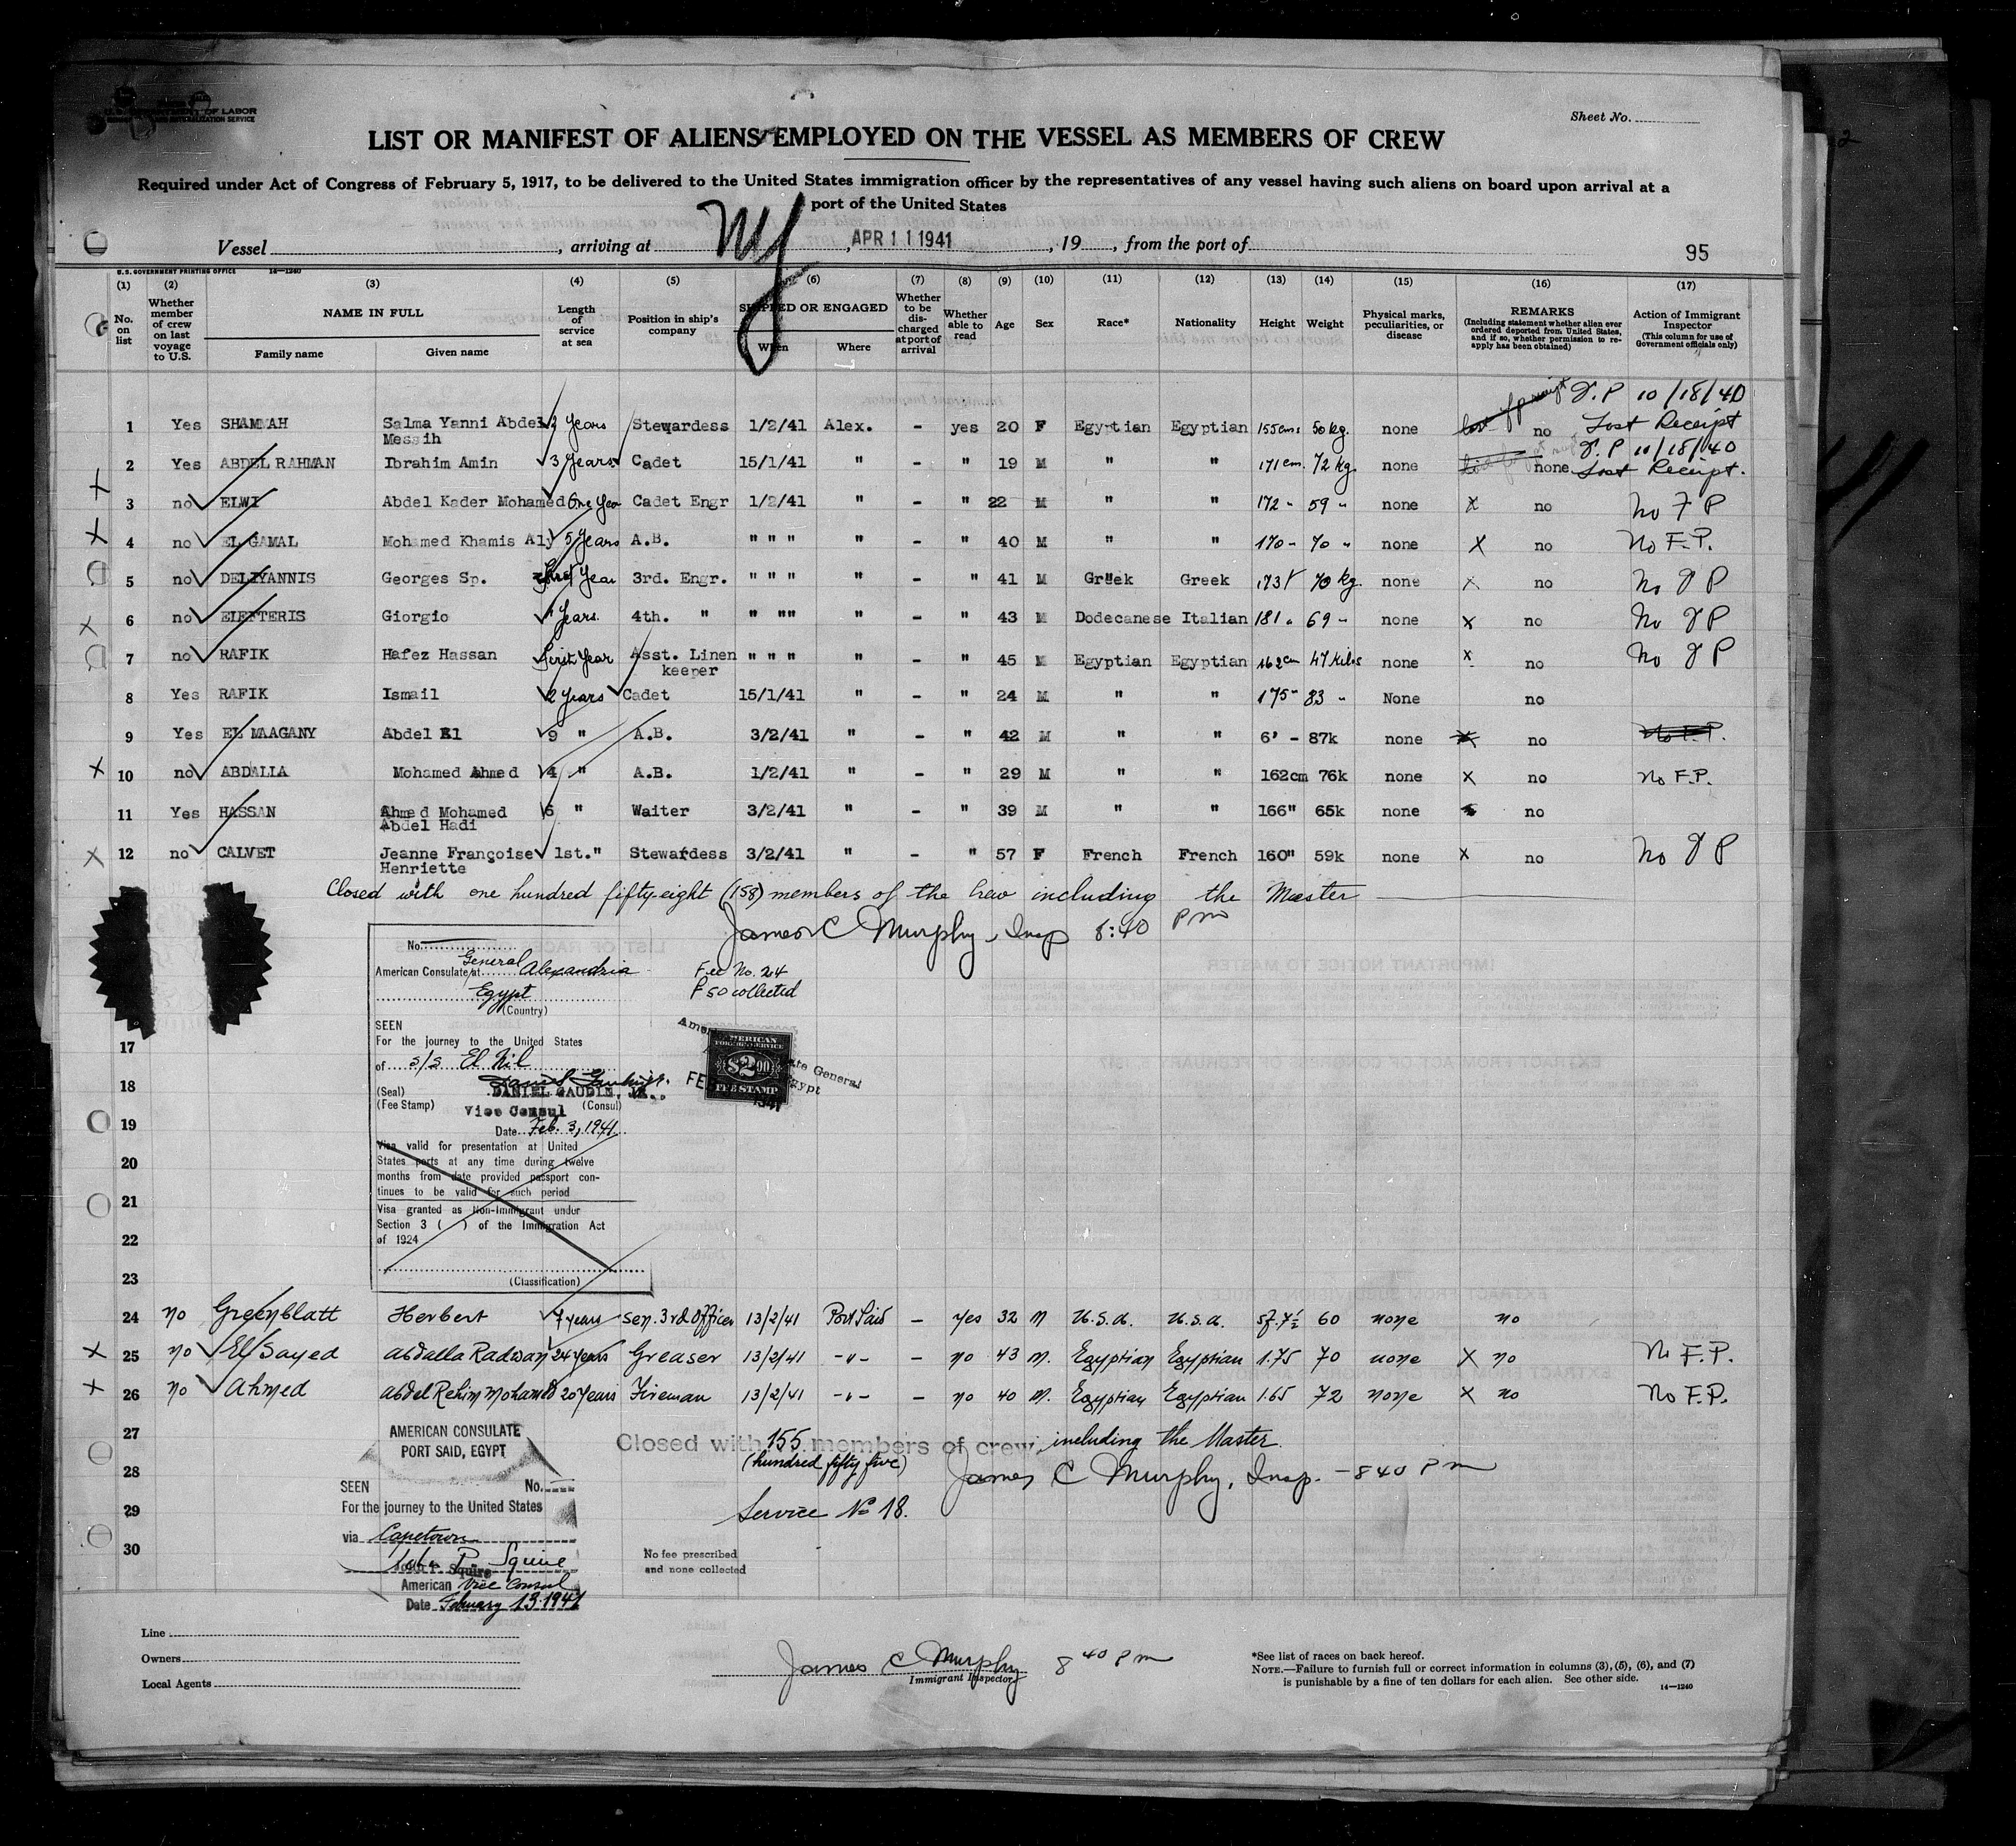 U.S. DEPARTMENT OF LABOR
IMMIGRATION AND NATURALIZATION SERVICE
Sheet No.
LIST OR MANIFEST OF ALIENS EMPLOYED ON THE VESSEL AS MEMBERS OF CREW
Required under Act of Congress of February 5, 1917, to be delivered to the United States immigration officer by the representatives of any vessel having such aliens on board upon arrival at a
port of the United States
Vessel , arriving at NY , APR 11 1941 , 19 , from the port of
95
U.S. GOVERNMENT PRINTING OFFICE 14—1240
(1) (2) (3) (4) (5) (6) (7) (8) (9) (10) (11) (12) (13) (14) (15) (16) (17)
No. on list
Whether member of crew on last voyage to U.S.
NAME IN FULL
Family name Given name
Length of service at sea
Position in ship's company
SHIPPED OR ENGAGED
When Where
Whether to be discharged at port of arrival
Whether able to read
Age
Sex
Race*
Nationality
Height
Weight
Physical marks, peculiarities, or disease
REMARKS
(Including statement whether alien ever ordered deported from United States, and if so, whether permission to reapply has been obtained)
Action of Immigrant Inspector
(This column for use of Government officials only)
F.P 10/18/40
1 Yes SHAMMAH Salma Yanni Abdel Messih 2 Years Stewardess 1/2/41 Alex. - yes 20 F Egyptian Egyptian 155cms 50kg. none no Lost Receipt
F.P 10/18/40
2 Yes ABDEL RAHMAN Ibrahim Amin 3 Years Cadet 15/1/41 " - " 19 M " " 171cm. 72kg. none none Lost Receipt.
3 no ELWI Abdel Kader Mohamed One Year Cadet Engr 1/2/41 " - " 22 M " " 172 " 59 " none X no No F P
4 no EL GAMAL Mohamed Khamis Aly 5 Years A.B. " " " " - " 40 M " " 170 - 70 " none X no No F.P.
5 no DELIYANNIS Georges Sp. first Year 3rd. Engr. " " " " - " 41 M Greek Greek 173 70 kg. none X no No F P
6 no ELEFTERIS Giorgio Years. 4th. " " " " " - " 43 M Dodecanese Italian 181 " 69 - none X no No F P
7 no RAFIK Hafez Hassan first Year Asst. Linen keeper " " " " - " 45 M Egyptian Egyptian 162cm 47 Kilos none X no No F P
8 Yes RAFIK Ismail 2 Years Cadet 15/1/41 " - " 24 M " " 175 " 83 " None no
9 Yes EL MAAGANY Abdel El 9 " A.B. 3/2/41 " - " 42 M " " 6' - 87k none no No F.P.
10 no ABDALLA Mohamed Ahmed 4 " A.B. 1/2/41 " - " 29 M " " 162cm 76k none X no No F.P.
11 Yes HASSAN Ahmed Mohamed Abdel Hadi 6 " Waiter 3/2/41 " - " 39 M " " 166" 65k none no
12 no CALVET Jeanne Françoise Henriette 1st." Stewardess 3/2/41 " - " 57 F French French 160" 59k none X no No F P
Closed with one hundred fifty-eight (158) members of the Crew including the Master
James C Murphy, Insp 8:40 PM
No.
American Consulate General at Alexandria
Egypt
(Country)
Fee No. 24
\$ 50 collected
SEEN
For the journey to the United States
of s/s El Nil
(Seal) DANIEL GAUDIN, JR.
(Fee Stamp) Vice Consul (Consul)
Date Feb. 3, 1941
AMERICAN
FOREIGN SERVICE
\$2.00
FEE STAMP
Visa valid for presentation at United
States ports at any time during twelve
months from date provided passport con-
tinues to be valid for such period
Visa granted as Non-Immigrant under
Section 3 ( ) of the Immigration Act
of 1924
(Classification)
17
18
19
20
21
22
23
24 no Greenblatt Herbert 7 years Sen. 3rd Officer 13/2/41 Port Said - yes 32 M U.S.A. U.S.A. 5f.7½ 60 none no
25 no El Sayed Abdalla Radwan 24 years Greaser 13/2/41 -"- - no 43 M. Egyptian Egyptian 1.75 70 none X no No F.P.
26 no Ahmed Abdel Rehim Mohamed 20 years Fireman 13/2/41 -"- - no 40 M. Egyptian Egyptian 1.65 72 none X no No F.P.
27
28
29
30
AMERICAN CONSULATE
PORT SAID, EGYPT
Closed with 155 members of crew, including the Master.
(hundred fifty five)
James C Murphy, Insp. - 840 PM
SEEN No.
For the journey to the United States
Service No 18.
via Capetown
John P. Squire
American Vice Consul
Date February 13 1941
No fee prescribed
and none collected
Line
Owners
Local Agents
James C Murphy 8 40 PM
Immigrant Inspector
*See list of races on back hereof.
NOTE.—Failure to furnish full or correct information in columns (3), (5), (6), and (7)
is punishable by a fine of ten dollars for each alien. See other side.
14—1240